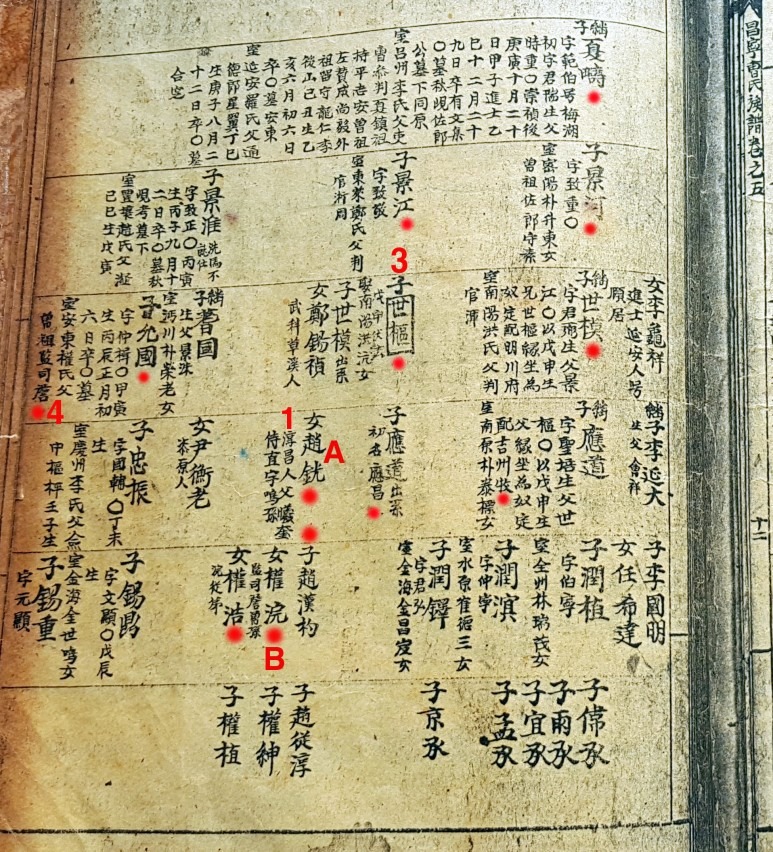 昌寧曺氏族譜卷之五
十二
嗣子夏疇
字範伯号梅湖
初字君瑞生父
時重○崇禎後
庚寅十月二十
日甲子進士乙
巳十二月二十
九日卒有文集
○墓秋峴佐郎
公墓下同原
室呂州李氏父吏
曹參判夏鎮祖
持平志安曾祖
左贊成尚毅外
祖留守龍仁李
後山己丑生乙
亥六月初六日
卒○墓安東
室延安羅氏父通
德郎星翼丁巳
生庚子八月二
十二日卒○墓
合窆
子景河
字致重○
室密陽朴升東女
曾祖佐郎守
子景江
字致
室東萊鄭氏父判
官
子景淮
字致正○丙寅
生丙子九月十
二日卒○墓秋
峴考墓下
室豊壤趙氏父
己巳生戊寅
女李龜祥
進士延安人号
顧居
嗣子世模
字君瑞生父景
江○以戊申生
兄世樞緣坐為
奴定配明川府
室南陽洪氏父判
官
3
子世樞
娶南陽洪沅女
子世模出系
女鄭錫禎
武科草溪人
嗣子著國
生父景
室沔川朴榮老女
子允國
字仲揖○甲寅
生丙辰正月初
六日卒○墓
室安東權氏父
曾祖監司詹
4
嗣子李延大
生父會祥
嗣子應道
字聖培生父世
樞○以戊申生
父緣坐為奴定
配吉州牧
室南原朴泰標女
子應道出系
初名應昌
1
女趙銑
A
淳昌人父
侍直字鳴
女尹衡老
人
子忠振
字國輔○丁未
生
室慶州李氏父僉
中樞枰壬子生
子李國明
女任希達
子潤植
字伯寧
室全州林瑞茂女
子潤濱
字仲寧
室水原崔德三女
子潤鐸
字君弘
室金海金昌度女
子趙漢杓
女權浣
監司詹曽孫
B
女權浩
浣從弟
子錫昌
字文顯○戊辰
生
室金海金世鳴女
子錫重
字元顯
子偉承
子雨承
子宜承
子孟承
子京承
子趙從淳
子權紳
子權植